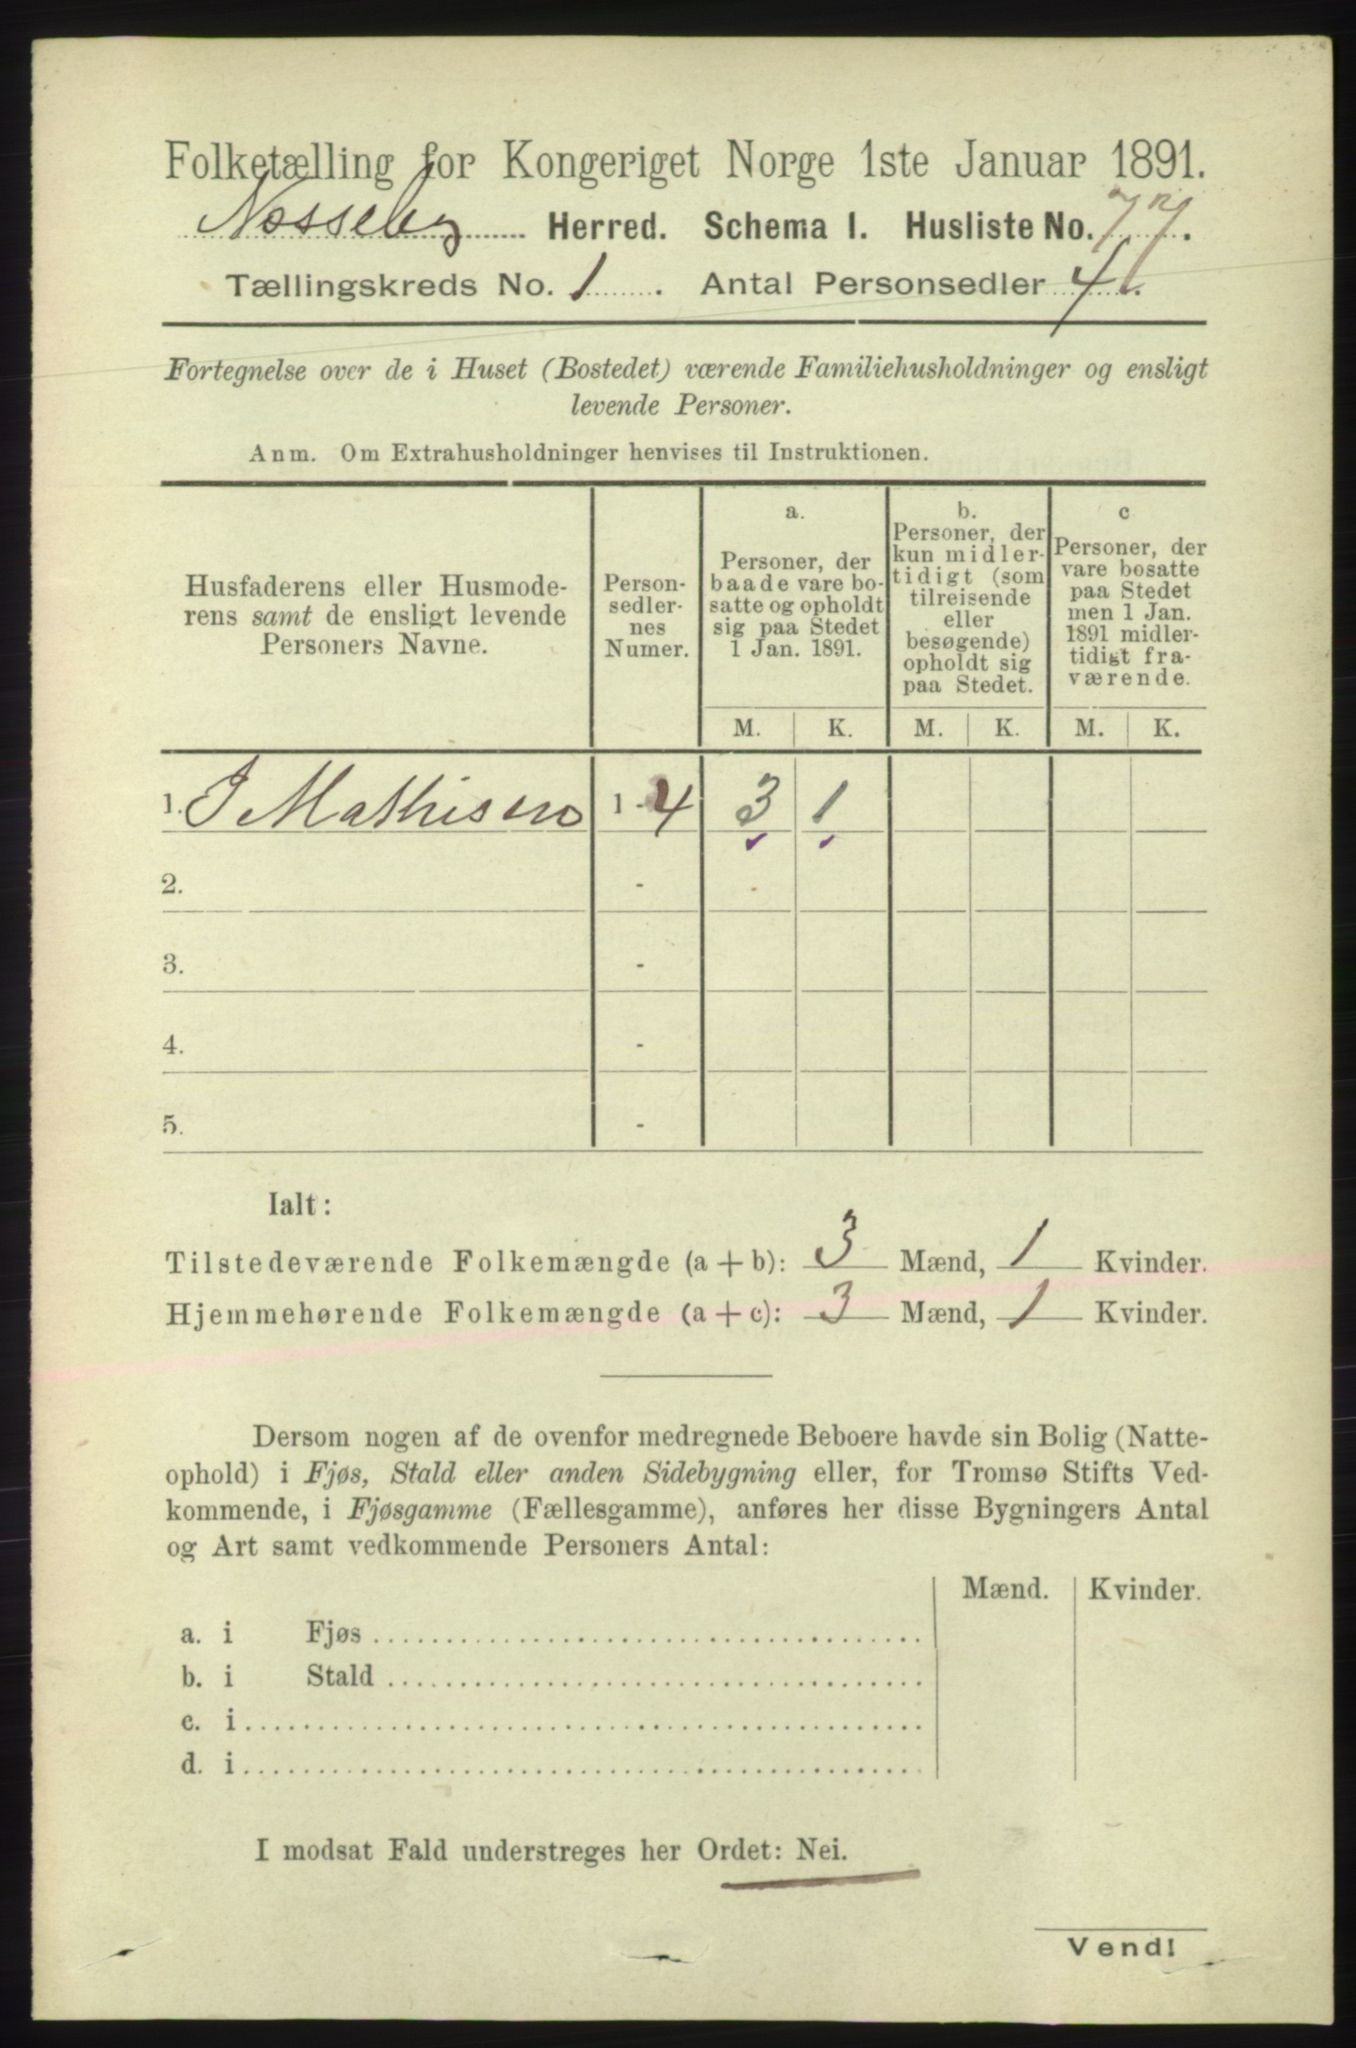 Folketælling for Kongeriget Norge 1ste Januar 1891.
Nesseby Herred. Schema I. Husliste No. 77.
Tællingskreds No. 1. Antal Personsedler 4.
Fortegnelse over de i Huset (Bostedet) værende Familiehusholdninger og ensligt
levende Personer.
Anm. Om Extrahusholdninger henvises til Instruktionen.
Husfaderens eller Husmode-
rens samt de ensligt levende
Personers Navne.
Person-
sedler-
nes
Numer.
a.
Personer, der
baade vare bo-
satte og opholdt
sig paa Stedet
1 Jan. 1891.
b.
Personer, der
kun midler-
tidigt (som
tilreisende
eller
besøgende)
opholdt sig
paa Stedet.
c
Personer, der
vare bosatte
paa Stedet
men 1 Jan.
1891 midler-
tidigt fra-
værende.
M. K. M. K. M. K.
1. I Mathisen 1 - 4 3 1
2. -
3. -
4. -
5. -
Ialt:
Tilstedeværende Folkemængde (a + b): 3 Mænd, 1 Kvinder.
Hjemmehørende Folkemængde (a + c): 3 Mænd, 1 Kvinder.
Dersom nogen af de ovenfor medregnede Beboere havde sin Bolig (Natte-
ophold) i Fjøs, Stald eller anden Sidebygning eller, for Tromsø Stifts Ved-
kommende, i Fjøsgamme (Fællesgamme), anføres her disse Bygningers Antal
og Art samt vedkommende Personers Antal:
Mænd. Kvinder.
a. i Fjøs
b. i Stald
c. i
d. i
I modsat Fald understreges her Ordet: Nei.
Vend!